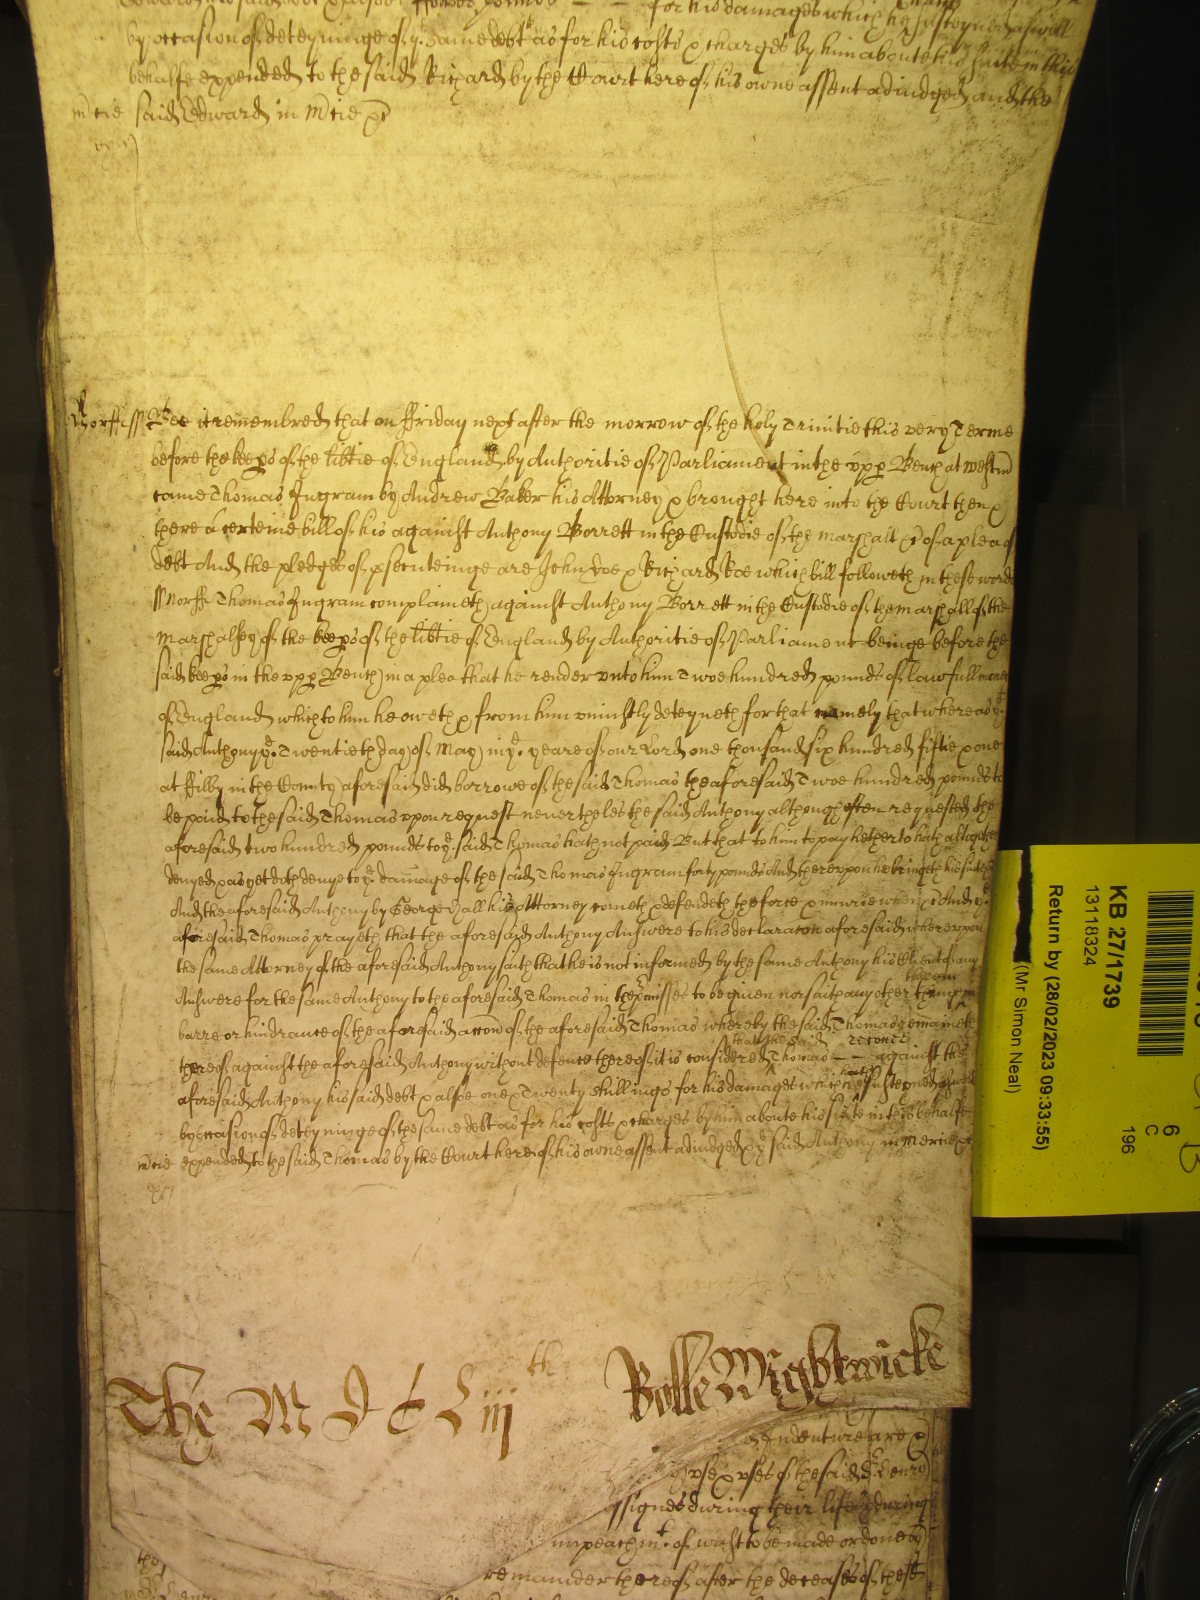 for his damages which he susteyned aswell
by occasion of deteyninge of yᵉ same debt as for his costs & charges by him about his suite in this
behalfe expended to the said Richard by the Court here of his owne assent adiudged and the
m̄cie said Edward in m̄cie &c
Norff ss Bee it remembred that on ffriday next after the morrow of the holy Trinitie this very Terme
before the keeps of the lib̃tie of England by Authoritie of Parliament in the vpp Bench at Westm̄
came Thomas Ingram by Andrew Baker his Attorney & brought here into the Court then &
there a certeine bill of his against Anthony Borrett in the Custodie of the Marshall &c of a plea of
debt And the pledges of psecuteinge are John Doe & Richard Roe which bill followeth in these words
ss Norff Thomas Ingram complaineth against Anthony Borrett in the Custodie of the marshall of the
Marshalsey of the keeps of the lib̃tie of England by Authoritie of Parliament beinge before the
said keeps in the vpp Bench in a plea that he render vnto him Twoe hundred pounds of lawfull money
of England which to him he oweth & from him vniustly deteyneth for that namely that whereas yᵉ
said Anthony yᵉ Twentieth day of May in yᵉ yeare of our Lord one thousand six hundred fiftie & one
at ffilby in the County aforesaid did borrowe of the said Thomas the aforesaid Twoe hundred pounds to
be paid to the said Thomas vpon request neverthelesse the said Anthony although often requested the
aforesaid two hundred pounds to yᵉ said Thomas hath not paid But that to him to pay hetherto hath altogether
denyed & as yet doth denye to yᵉ dam̄age of the said Thomas Ingram forty pounds And therevpon he bringeth his suite &c
And the aforesaid Anthony by George Hall his Attorney cometh & defendeth the force & iniurie when &c And yᵉ
aforesaid Thomas prayeth that the aforesaid Anthony Answere to his declaracon aforesaid wherevpon
the same Attorney of the aforesaid Anthony saith that he is not informed by the same Anthony his Client of any
Answere for the same Anthony to the aforesaid Thomas in the pmisses to be given nor saith any other thing in
barre or hindrance of the aforesaid accon of the aforesaid Thomas whereby the said Thomas remaineth
thereof against the aforesaid Anthony without defence thereof it is considered that the said Thomas recover against the
aforesaid Anthony his said debt & alsoe one & Twenty shillings for his damages which he hath susteyned aswell
by occasion of deteyninge of the same debt as for his costs & charges by him aboute his suite in this behalfe
m̄cie expended to the said Thomas by the Court here of his owne assent adiudged & yᵉ said Anthony in mercie &c
The M D C L iij th Rolle Wightwicke
Indenture are &
vse & vses of the said
ssignes during their lifes & during
impeachmt of wast to be made or done &
remainder thereof after the decease of the
KB 27/1739
13118324
Return by (28/02/2023 09:33:55)
(Mr Simon Neal)
196
6
C